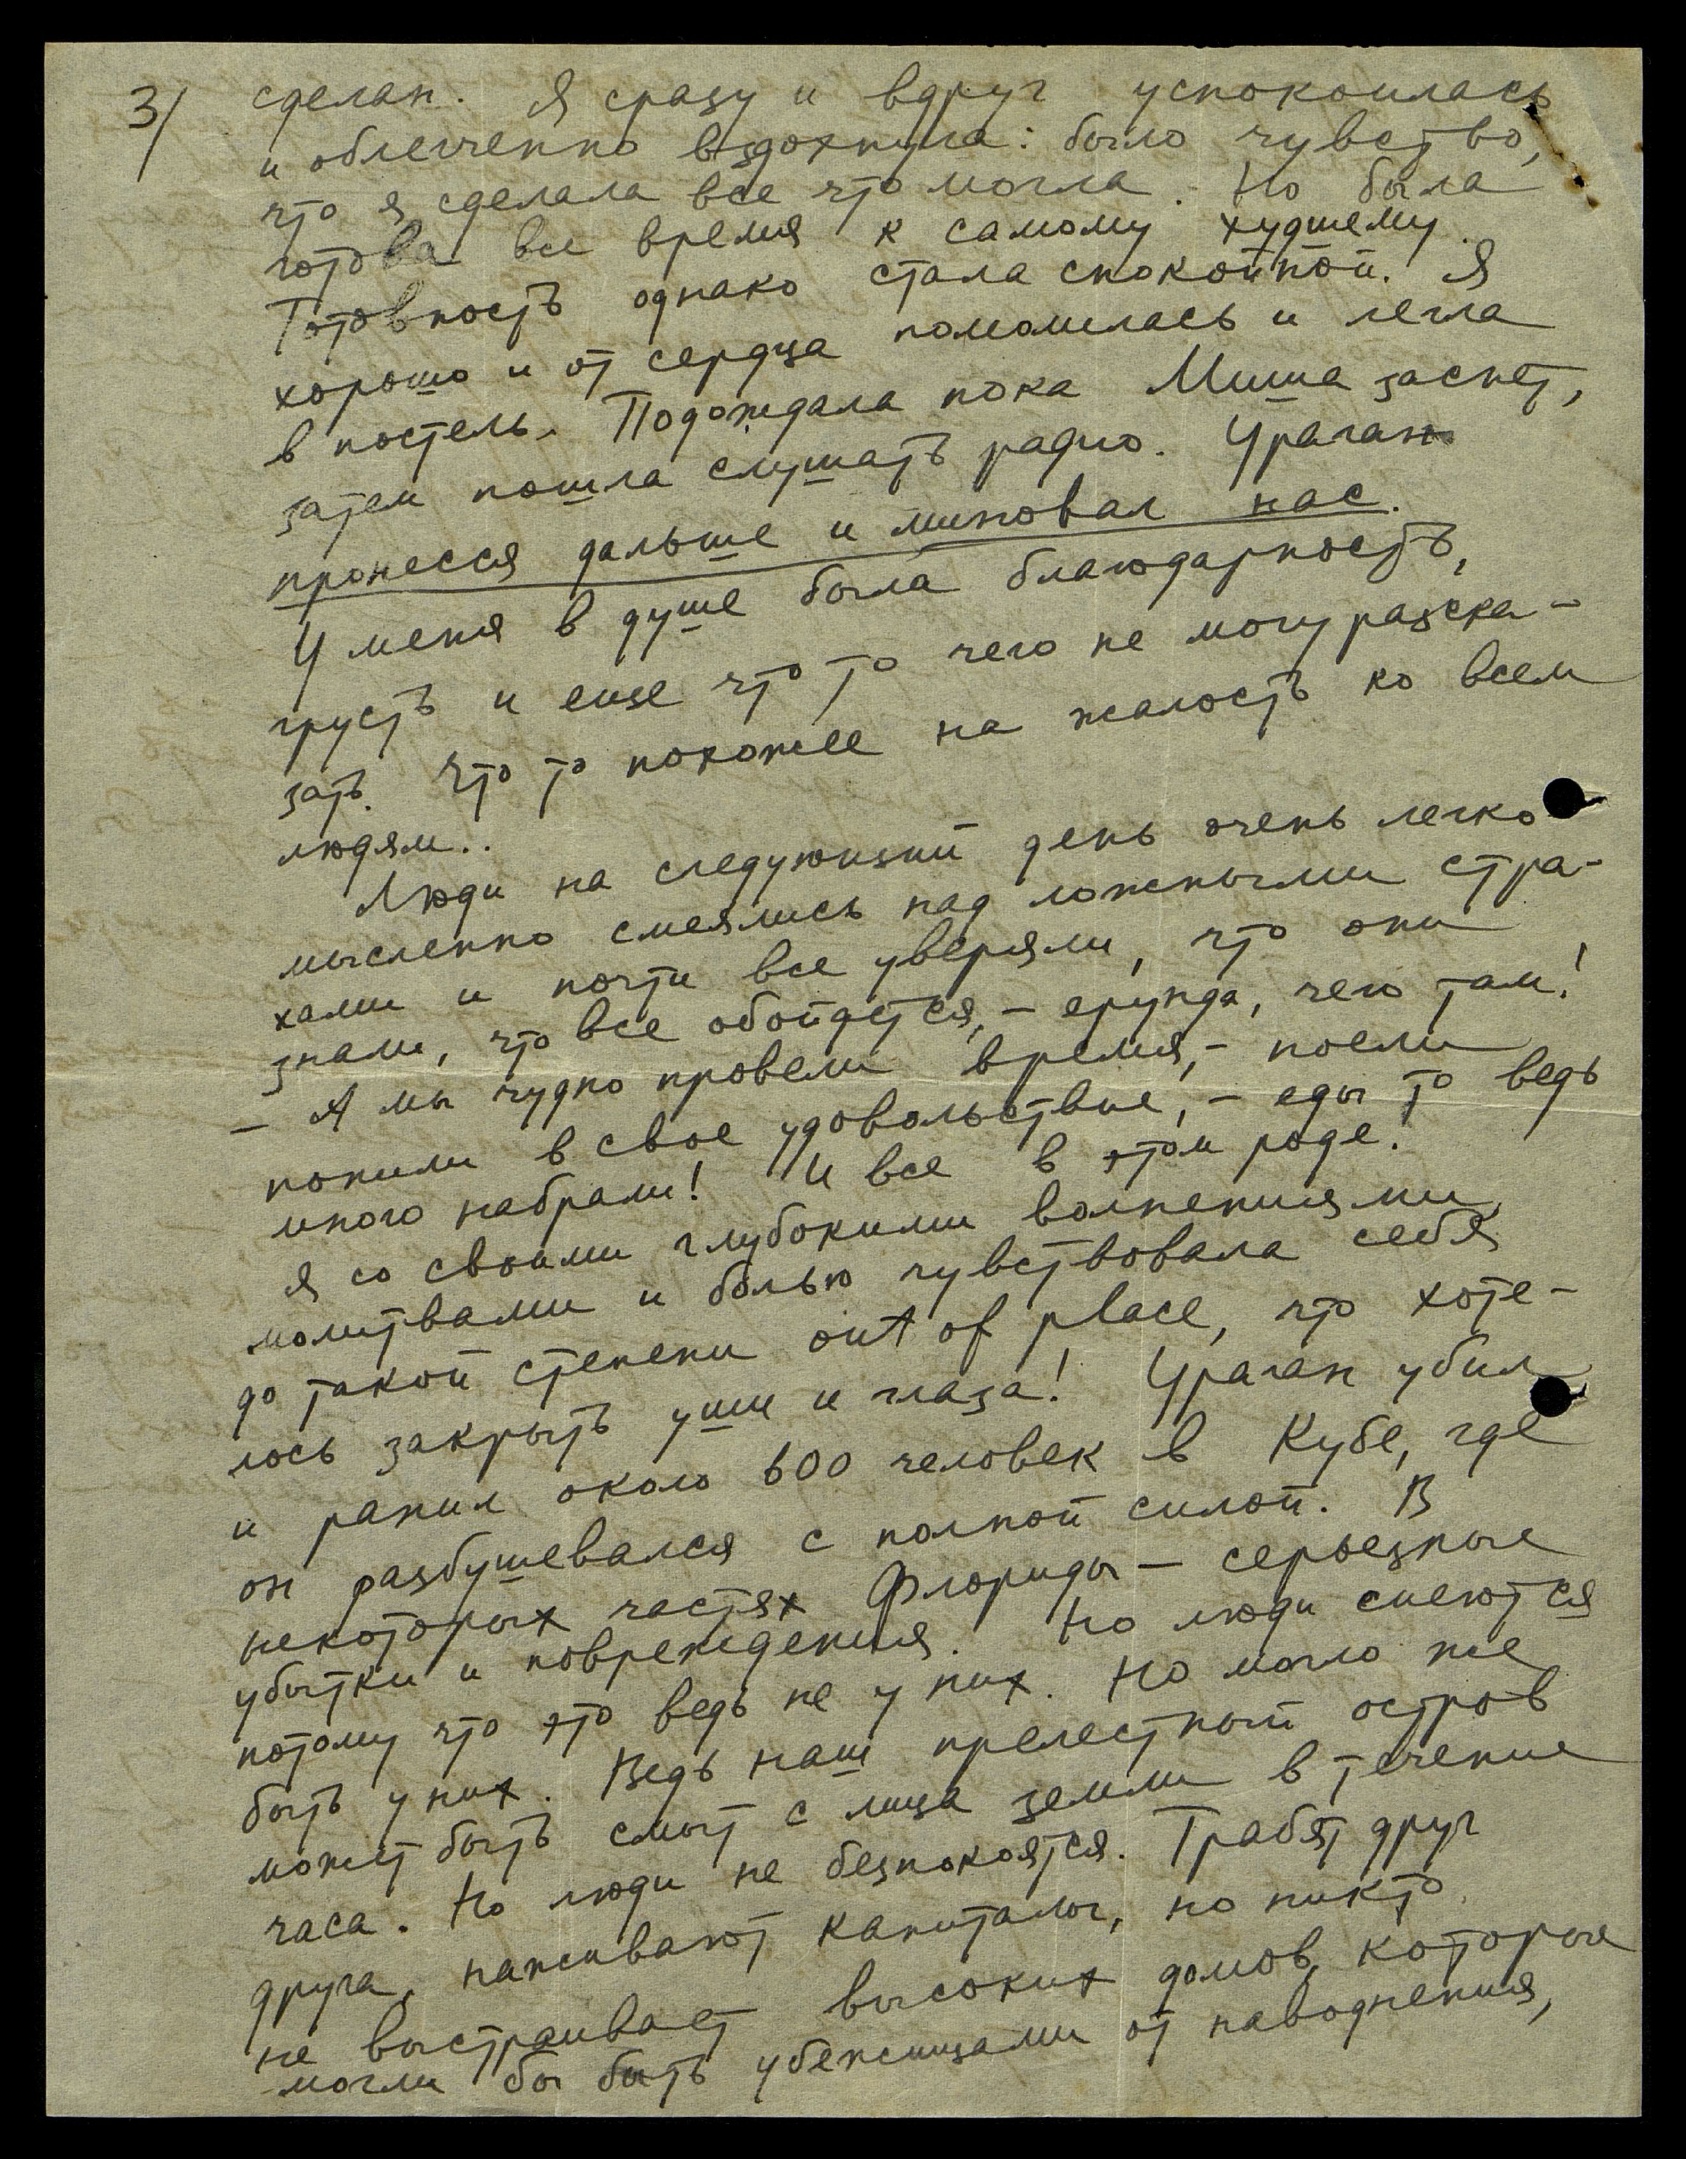 3/ сделан. Я сразу и вдруг успокоилась
и облегченно вздохнула: было чувство,
что я сделала все что могла. Но была
готова все время к самому худшему.
Готовность однако стала спокойной. Я
хорошо и от сердца помолилась и легла
в постель. Подождала пока Миша заснет,
затем пошла слушать радио. Ураган
пронесся дальше и миновал нас.
У меня в душе была благодарность,
грусть и еще что то чего не могу разска-
зать. Что то похожее на жалость ко всем
людям..
Люди на следующий день очень легко
мысленно смеялись над ложными стра-
хами и почти все уверяли, что они
знали, что все обойдется, – ерунда, чего там!
– А мы чудно провели время, – поели
попили в свое удовольствие, – еды то ведь
много набрали! И все в этом роде!
Я со своими глубокими волнениями,
молитвами и болью чувствовала себя
до такой степени out of place, что хоте-
лось закрыть уши и глаза! Ураган убил
и ранил около 600 человек в Кубе, где
он разбушевался с полной силой. В
некоторых частях Флориды – серьезные
убытки и повреждения. Но люди смеются
потому что это ведь не у них. Но могло же
быть у них. Ведь наш прелестный остров
может быть смыт с лица земли в течение
часа. Но люди не безпокоятся. Грабят друг
друга, наживают капиталы, но никто
не выстраивает высоких домов, которые
могли бы быть убежищами от наводнения,